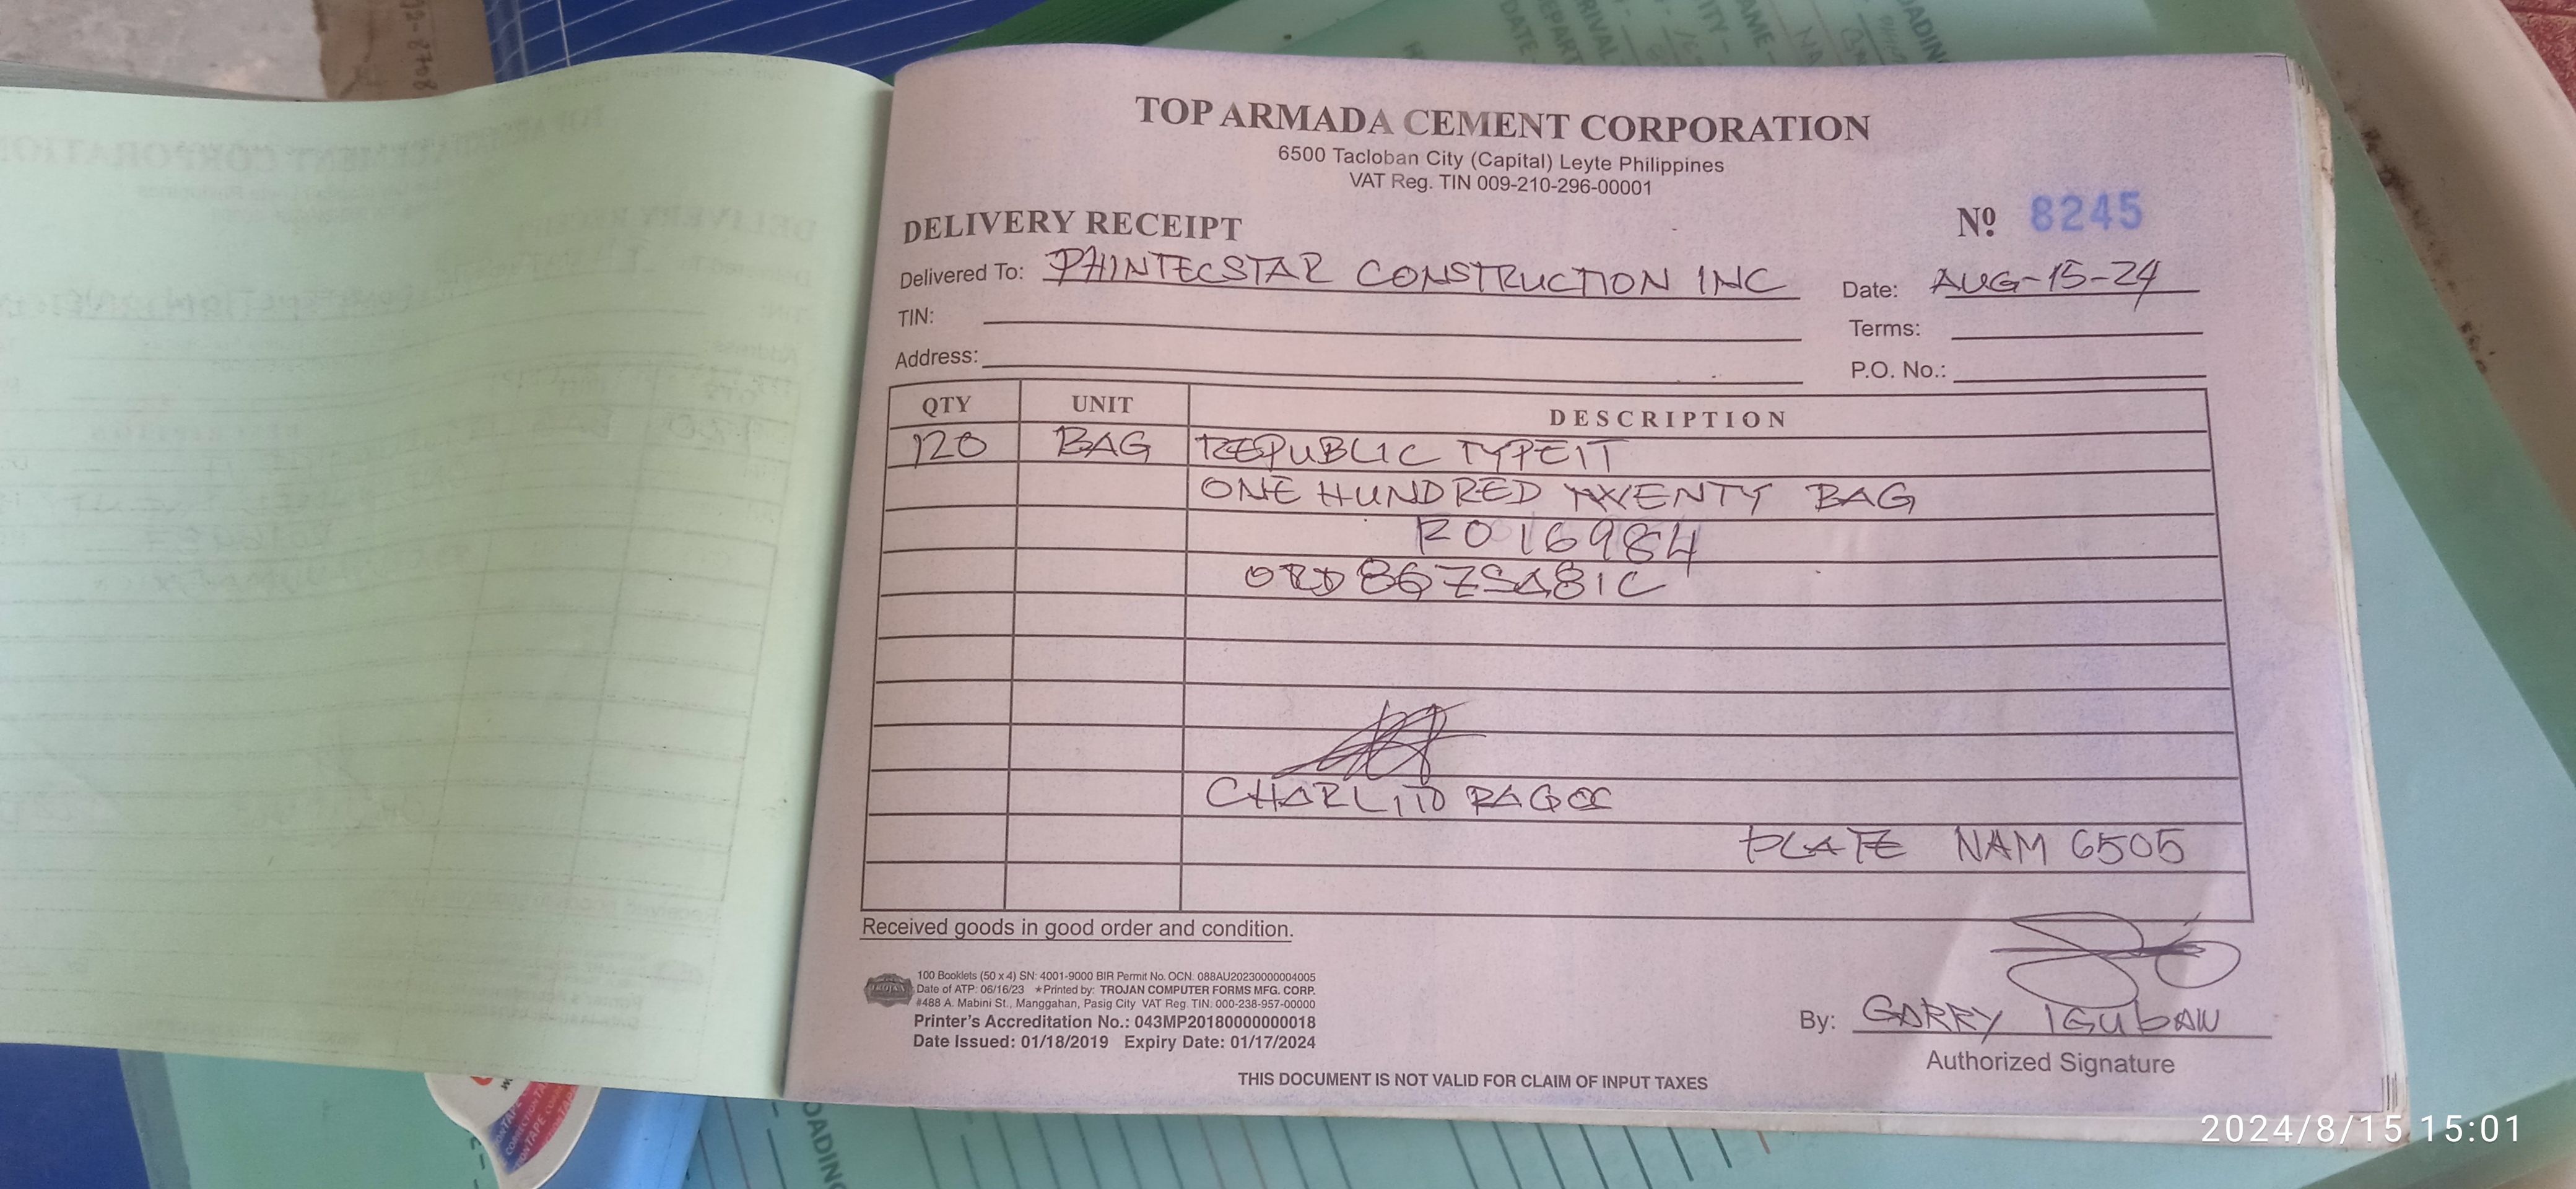 TOP ARMADA CEMENT CORPORATION
6500 Tacloban City (Capital) Leyte Philippines
VAT Reg. TIN 009-210-296-00001
DELIVERY RECEIPT
Nº 8245
Delivered To: PHINTECSTAR CONSTRUCTION INC
Date: AUG-15-24
TIN:
Terms:
Address:
P.O. No.:
QTY UNIT DESCRIPTION
120 BAG REPUBLIC TYPE1T
ONE HUNDRED TWENTY BAG
RO16984
ORD867SA81C
CHARLITO RAGOC
PLATE NAM 6505
Received goods in good order and condition.
100 Booklets (50 x 4) SN: 4001-9000 BIR Permit No. OCN. 088AU20230000004005
Date of ATP: 06/16/23 *Printed by: TROJAN COMPUTER FORMS MFG. CORP.
#488 A. Mabini St., Manggahan, Pasig City VAT Reg. TIN. 000-238-957-00000
Printer's Accreditation No.: 043MP20180000000018
Date Issued: 01/18/2019 Expiry Date: 01/17/2024
By: GARRY IGUbAN
Authorized Signature
THIS DOCUMENT IS NOT VALID FOR CLAIM OF INPUT TAXES
2024/8/15 15:01